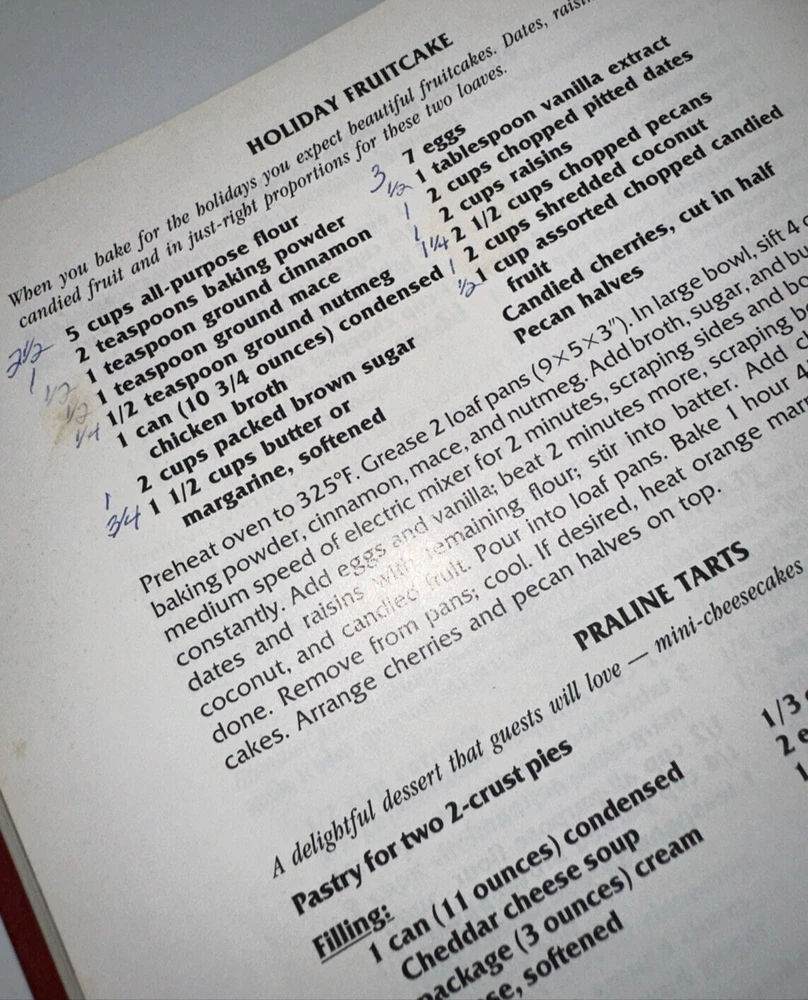 HOLIDAY FRUITCAKE
When you bake for the holidays you expect beautiful fruitcakes. Dates,
candied fruit and in just-right proportions for these two loaves.
2 1/2 5 cups all-purpose flour
1 2 teaspoons baking powder
1/2 1 teaspoon ground cinnamon
1/2 1 teaspoon ground mace
1/4 1/2 teaspoon ground nutmeg
1 can (10 3/4 ounces) condensed
chicken broth
1 2 cups packed brown sugar
3/4 1 1/2 cups butter or
margarine, softened
3 7 eggs
1/2 1 tablespoon vanilla extract
1 2 cups chopped pitted dates
1 2 cups raisins
1 1/4 2 1/2 cups chopped pecans
1 2 cups shredded coconut
1/2 1 cup assorted chopped candied
fruit
Candied cherries, cut in half
Pecan halves
Preheat oven to 325°F. Grease 2 loaf pans (9×5×3"). In large bowl, sift 4
baking powder, cinnamon, mace, and nutmeg. Add broth, sugar, and
medium speed of electric mixer for 2 minutes, scraping sides and
constantly. Add eggs and vanilla; beat 2 minutes more, scraping
dates and raisins with remaining flour; stir into batter. Add
coconut, and candied fruit. Pour into loaf pans. Bake 1 hour
done. Remove from pans; cool. If desired, heat orange
cakes. Arrange cherries and pecan halves on top.
PRALINE TARTS
A delightful dessert that guests will love — mini-cheesecakes
Pastry for two 2-crust pies
Filling:
1 can (11 ounces) condensed
Cheddar cheese soup
package (3 ounces) cream
softened
1/3
2
1